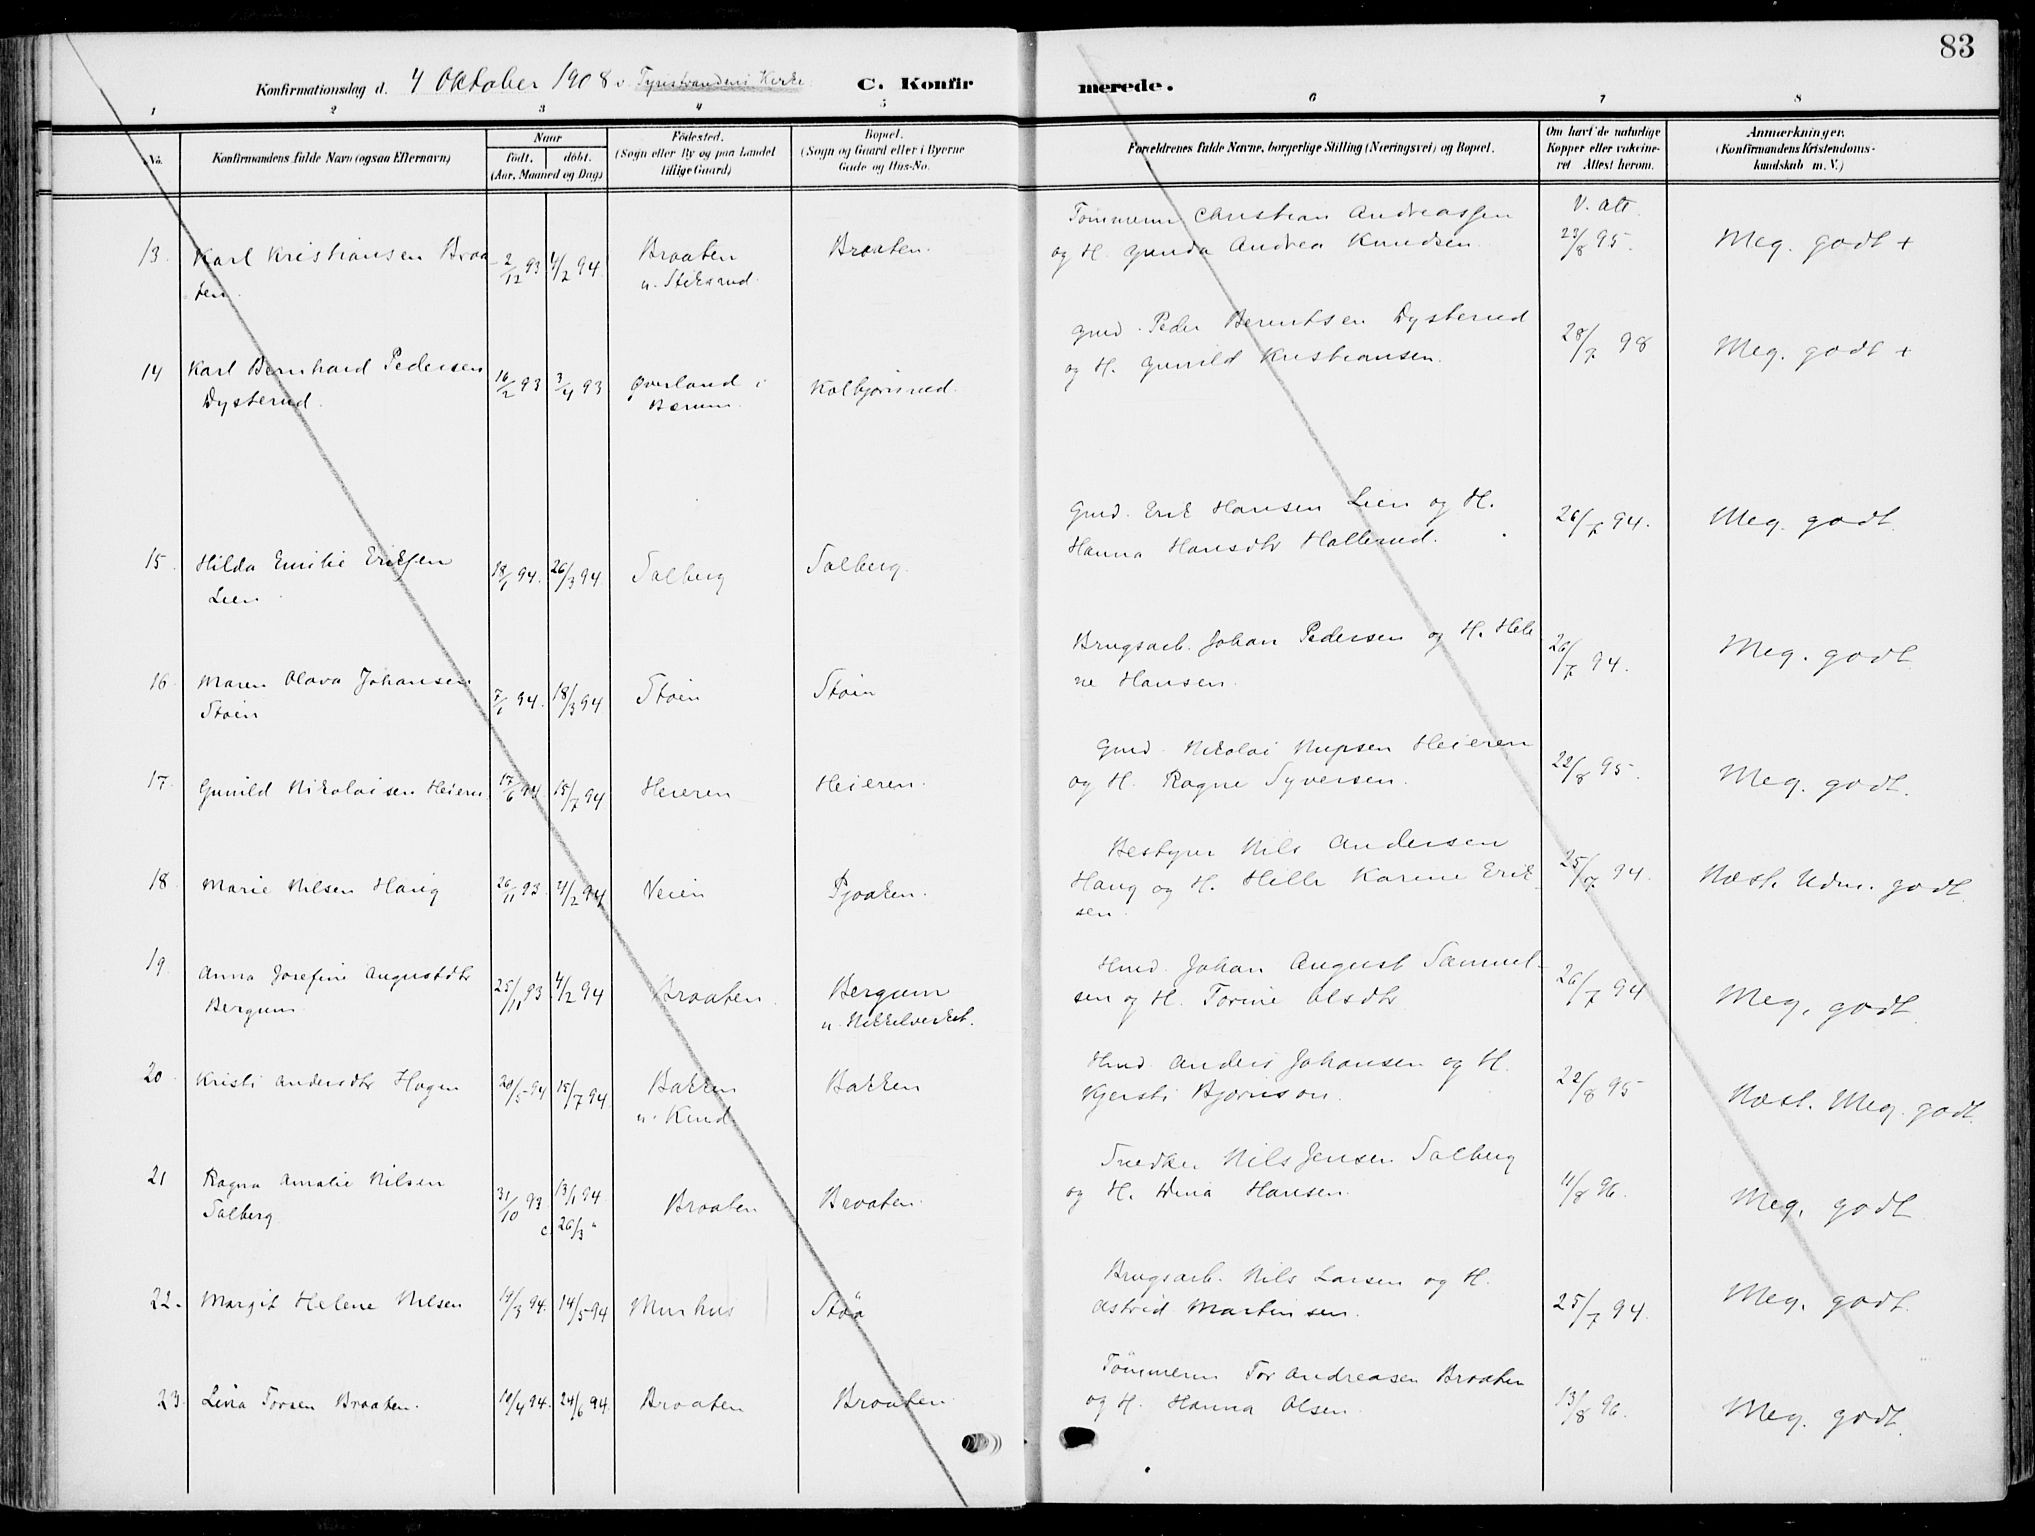 83
Konfirmationsdag d. 4 Oktober 1908 v. Tyristrandens Kirke
C. Konfirmerede.
1 2 3 4 5 6 7 8
No.
Konfirmandens fulde Navn (ogsaa Efternavn)
Naar
født, døbt.
(Aar, Maaned og Dag)
Fødested.
(Sogn eller By og paa Landet
tillige Gaard)
Bopæl.
(Sogn og Gaard eller i Byerne
Gade og Hus-No.
Forældrenes fulde Navne, borgerlige Stilling (Næringsvei) og Bopæl.
Om havt de naturlige
Kopper eller vakcine-
ret Attest herom.
Anmærkninger.
(Konfirmandens Kristendoms-
kundskab m. V.)
13. Karl Kristiansen Braa-
ten.
2/12 93 4/2 94
Braaten
u. Stiksrud.
Braaten.
Tømmerm Christian Andreassen
og H. Gunda Andrea Knudsen.
V. att.
23/8 95.
Meg. godt +
14 Karl Bernhard Pedersen
Dysterud.
16/2 93 3/4 93
Øverland i
Bærum.
Kolbjørnsrud.
Gmd. Peder Berentsen Dysterud
og H. Gunild Kristiansen.
28/7 98
Meg. godt +
15. Hilda Emilie Eriksen
Lien.
18/1 94. 26/3 94
Solberg
Solberg.
Gmd. Erik Hansen Lien og H.
Hanna Hansdtr Hollerud.
26/7 94.
Meg. godt.
16. Maren Olava Johansen
Støin
7/1 94. 18/3 94
Støin
Støin
Brugsarb. Johan Pedersen og H. Hele
ne Hansen.
26/7 94.
Meg. godt.
17. Gunild Nikolaisen Heieren
17/6 94 15/7 94
Heieren
Heieren.
Gmd. Nikolai Nupsen Heieren
og H. Ragne Syversen.
22/8 95.
Meg. godt.
18. Marie Nilsen Haug
26/11 93. 4/2 94
Veien
Pjaaken.
Bestyrer Nils Andersen
Haug og H. Helle Karine Erik-
sen.
25/7 94.
Næst. Udm. godt.
19. Anna Josefine Augustdtr
Bergum
25/11 93 4/2 94
Braaten.
Bergum
u. Nikkelverket.
Hmd. Johan August Samuel-
sen og H. Torine Olsdtr
26/7 94
Meg. godt.
20. Kristi Andersdtr Hagen
20/5 94 15/7 94.
Bakken
u. Rud
Bakken
Hmd. Anders Johansen og H.
Kjersti Bjørnson.
22/8 95
Næst. Meg. godt.
21 Ragna Amalie Nilsen
Solberg
31/10 93 13/1 94.
c. 26/3 "
Braaten
Braaten.
Snedker Nils Jensen Solberg
og H. Dina Hansen.
11/8 96.
Meg. godt
22. Margit Helene Nilsen
19/3 94. 14/5 94
Murhus
Støa
Brugsarb. Nils Larsen og H.
Astrid Martinsen.
25/7 94.
Meg. godt.
23. Lina Torsen Braaten.
19/4 94. 24/6 94.
Braaten
Braaten.
Tømmerm Tor Andreasen Braaten
og H. Hanna Olsen.
13/8 96.
Meg. godt.